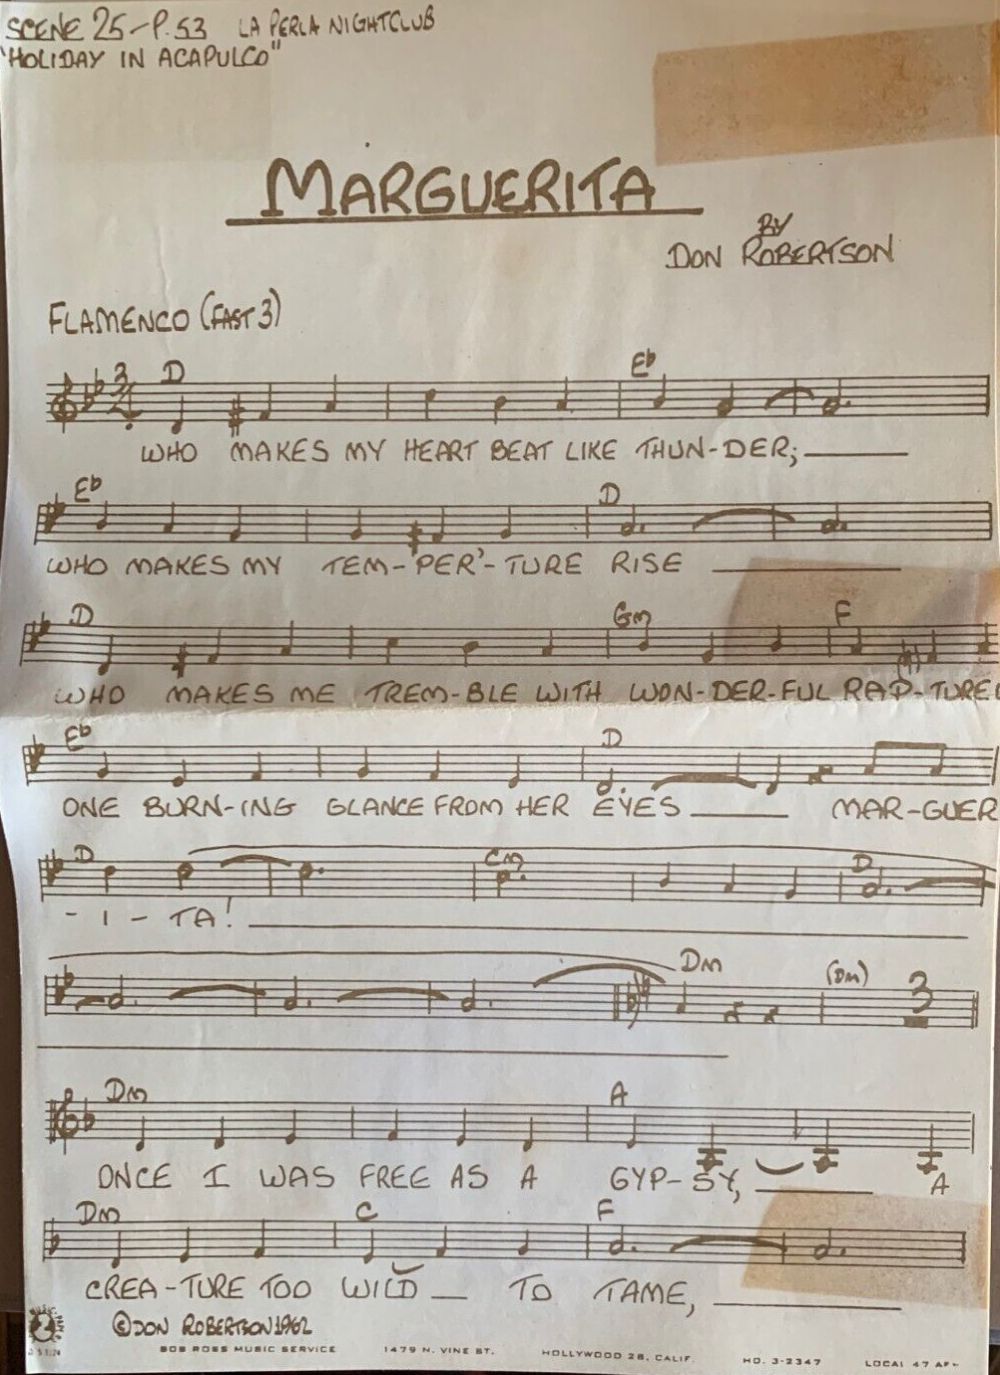 SCENE 25-P.53 LA PERLA NIGHTCLUB
"HOLIDAY IN ACAPULCO"
MARGUERITA
BY
DON ROBERTSON
FLAMENCO (FAST 3)
3 4 D Eb
WHO MAKES MY HEART BEAT LIKE THUN-DER;
Eb D
WHO MAKES MY TEM-PER'-TURE RISE
D Gm F
WHO MAKES ME TREM-BLE WITH WON-DER-FUL RAP-TURE
Eb D
ONE BURN-ING GLANCE FROM HER EYES MAR-GUER
D Cm D
-I-TA!
Dm (Dm) 3
Dm A
ONCE I WAS FREE AS A GYP-SY, A
Dm C F
CREA-TURE TOO WILD TO TAME,
©DON ROBERTSON 1962
BOB ROSS MUSIC SERVICE 1479 N. VINE ST. HOLLYWOOD 28, CALIF. HO. 3-2347 LOCAL 47 AF